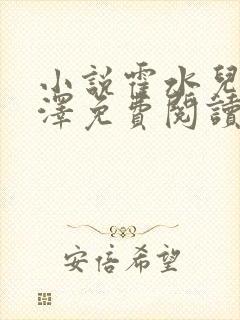 小說霍水兒
澤免費閱讀
安倍希望